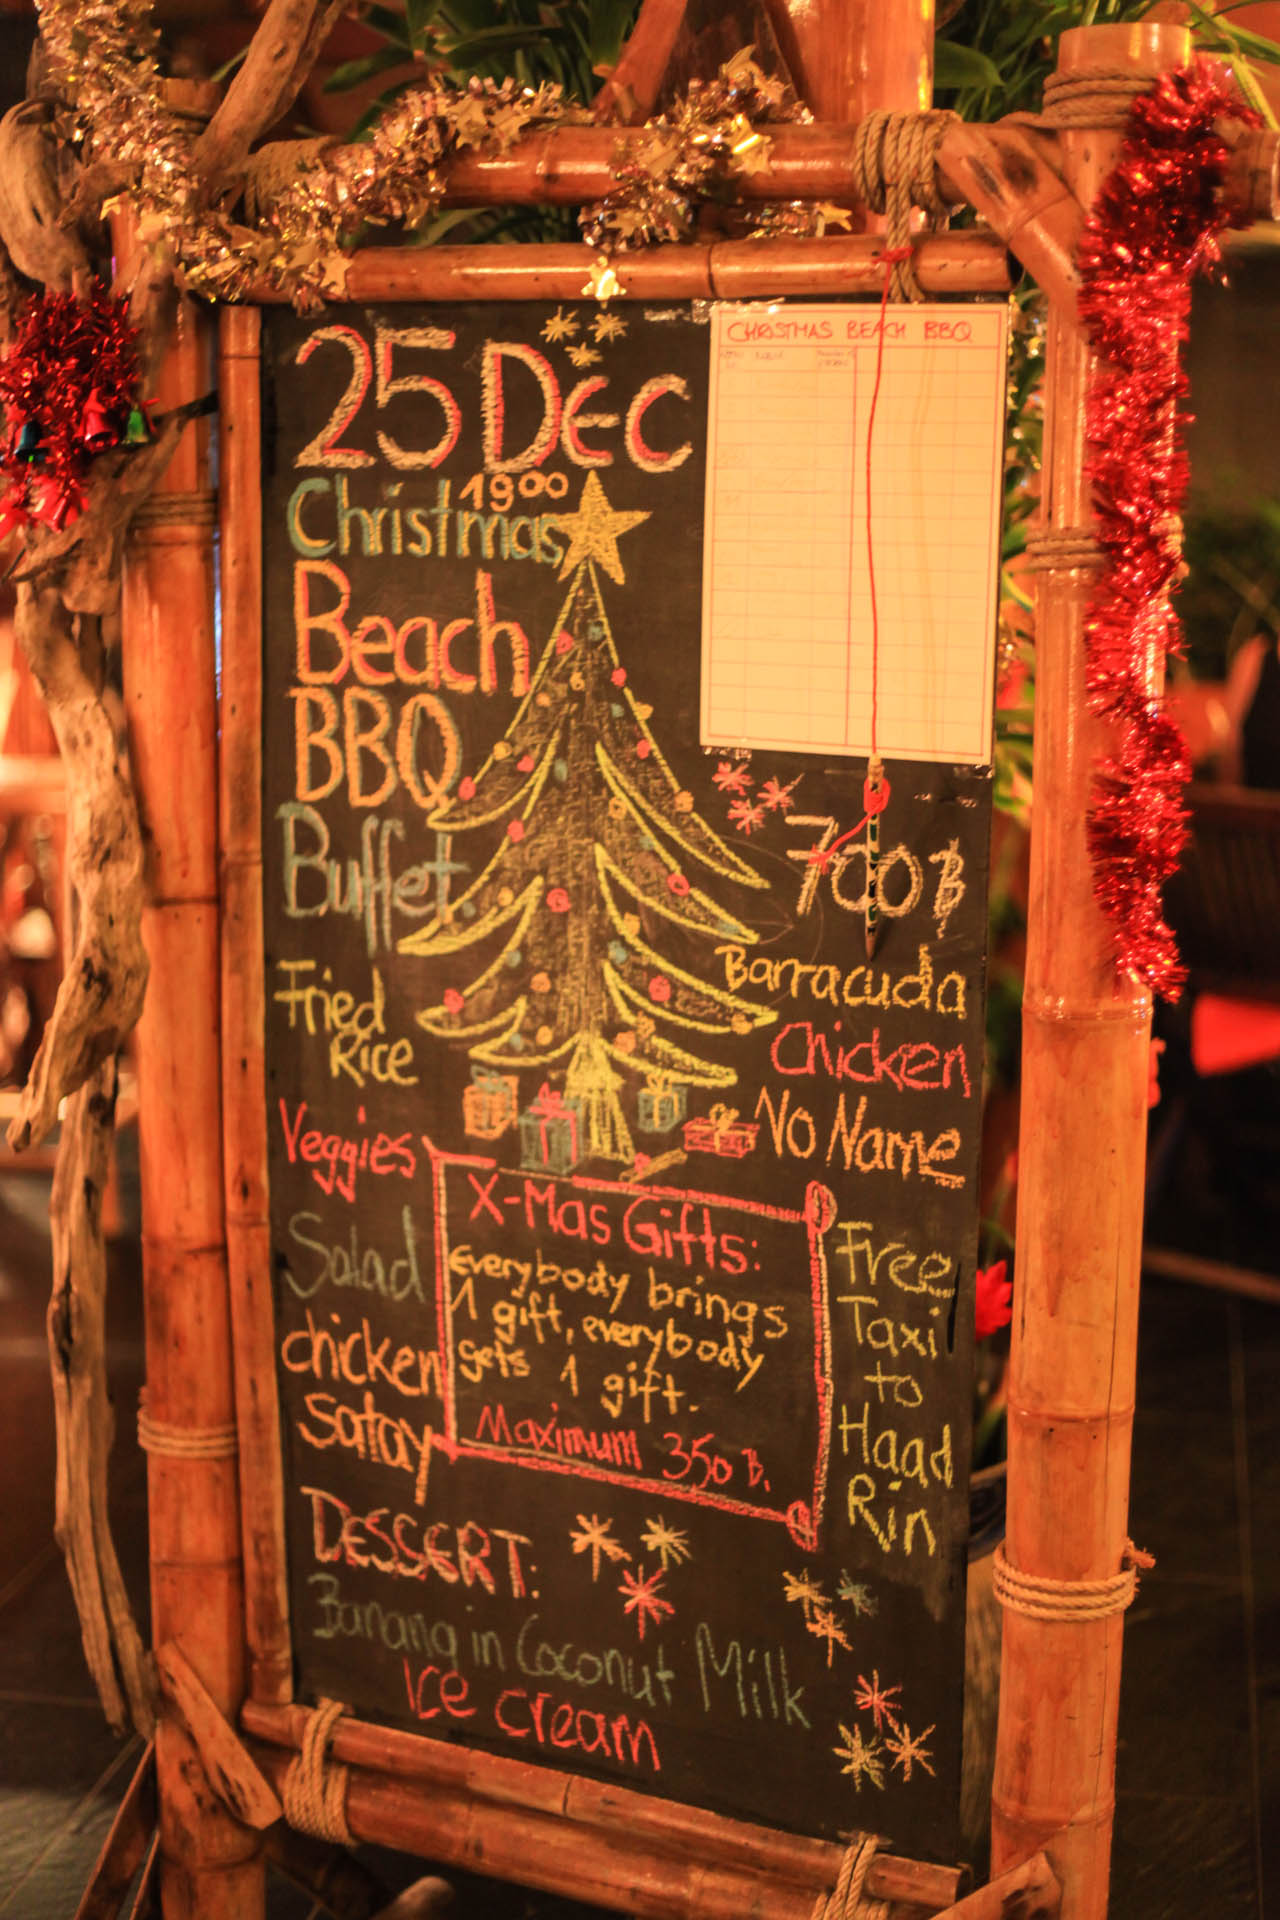 25 Dec
19⁰⁰
Christmas
Beach
BBQ
Buffet
Fried
Rice
Veggies
Salad
chicken
satay
CHRISTMAS BEACH BBQ
700 B
Barracuda
Chicken
No Name
X-Mas Gifts:
everybody brings
1 gift, everybody
gets 1 gift.
Maximum 350 B.
Free
Taxi
to
Haad
Rin
DESSERT:
Banana in Coconut Milk
Ice cream